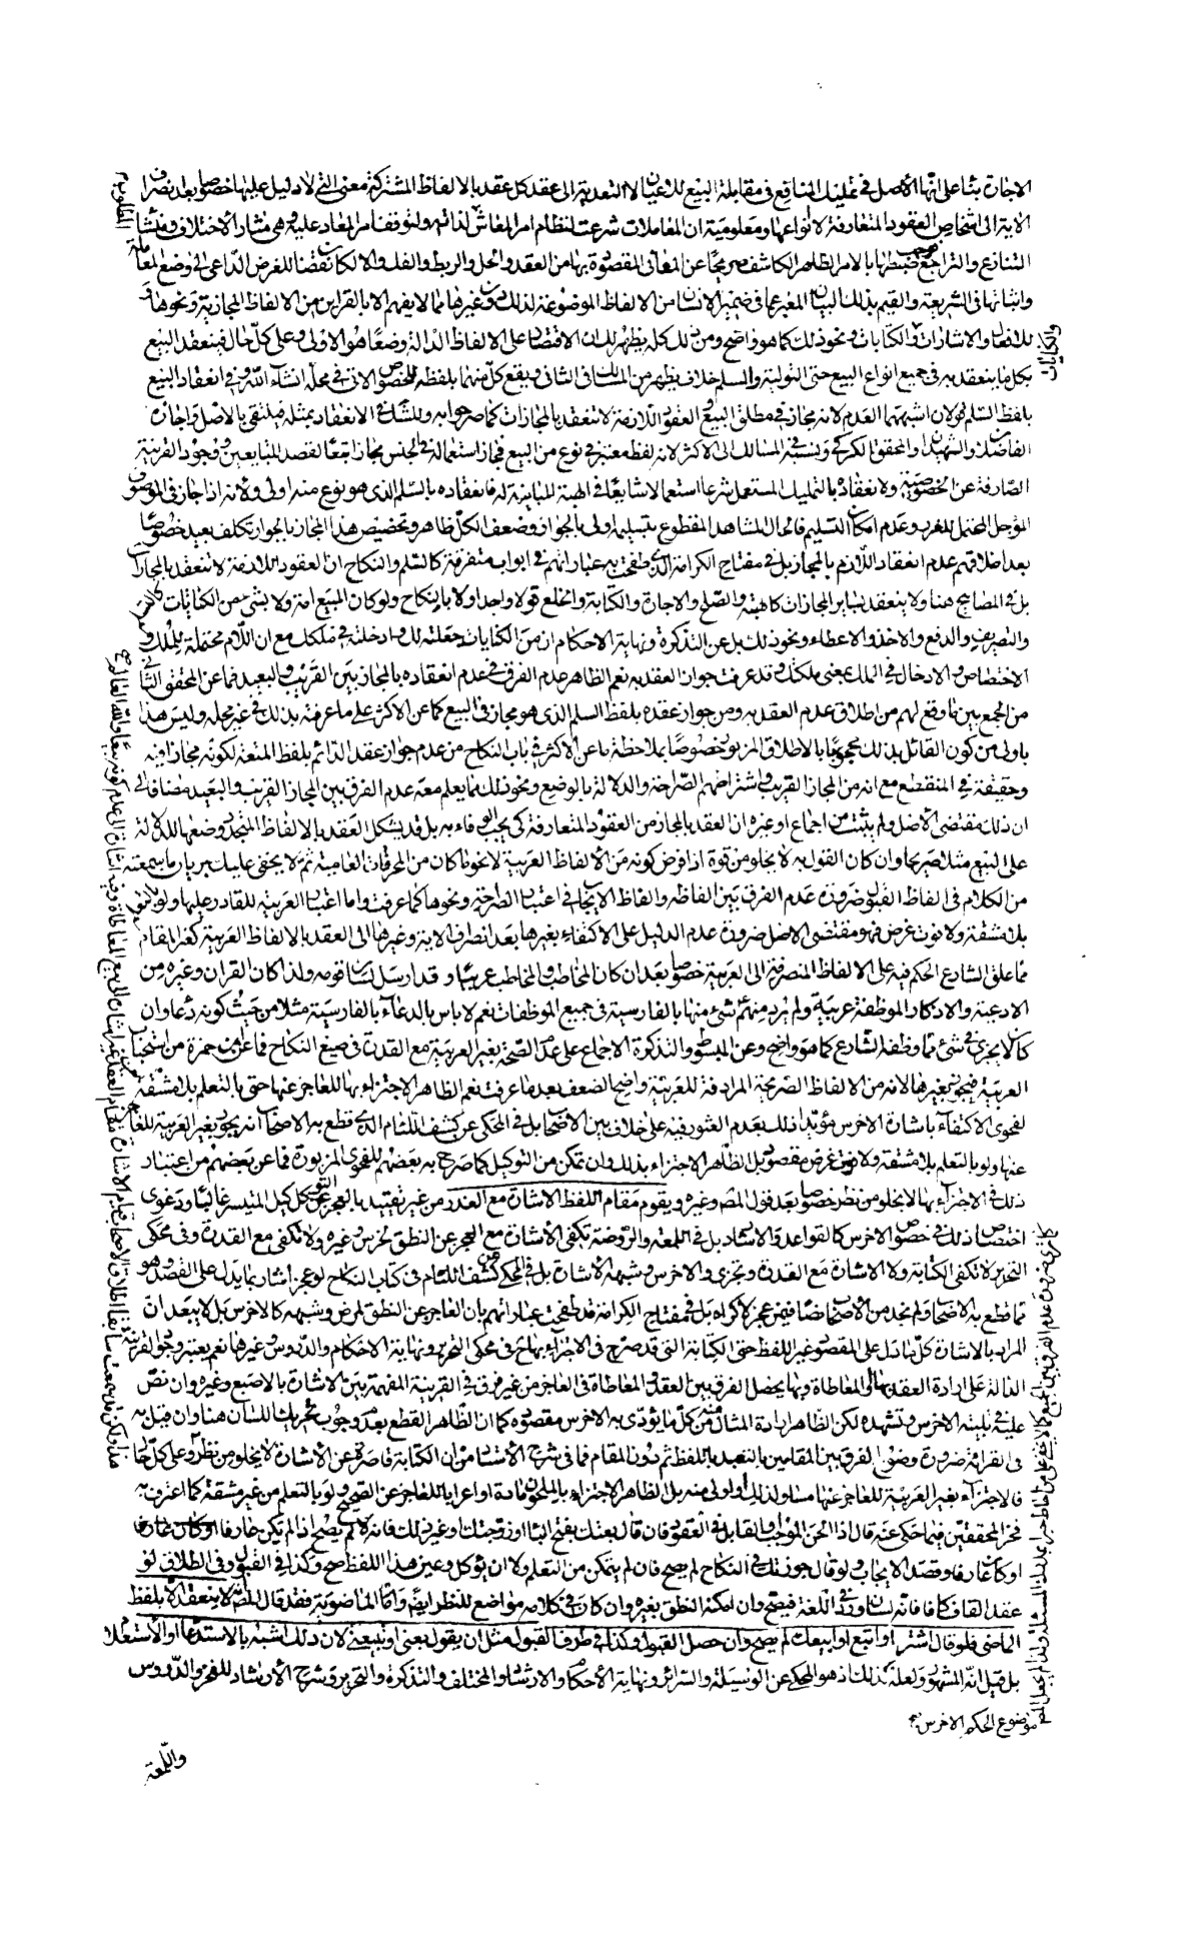 الاجارة بناء على انها الاصل في تمليك المنافع في مقابلة البيع للاعيان لا التعدية الى عقد كل عقد بالالفاظ المشتركة معنى التي لا دليل عليها خصوصا بعد انصراف
الاية الى اشخاص العقود المتعارفة لا انواعها ومعلومية ان المعاملات شرعت لنظام امر المعاش لذاته ولتوقف امر المعاد عليه وهي مثار الاختلاف ومنشأ
التنازع والتراجع فوجب ضبطها بالامر الظاهر الكاشف صريحا عن المعاني المقصودة بها من العقد والحل والربط والفك والا لكان نقضا للغرض الداعي الى وضع المعاملة
واثباتها في الشريعة والقيم بذلك البيان المعبر عما في ضمير الانسان من الالفاظ الموضوعة لذلك دون غيرها مما لا يفهم الا بالقراين من الالفاظ المجازية ونحوها
للافعال والاشارات والكنايات ونحو ذلك كما هو واضح ومن ذلك كله يظهر لك ان الاقتصار على الالفاظ الدالة وضعا هو الاولى وعلى كل حال فينعقد البيع
بكل ما ينعقد به في جميع انواع البيع حتى التولية والسلم خلافا يظهر من المسالك في الثاني ويقع كل منهما بلفظه الخصوص الاتي في محله انشاء الله وفي انعقاد البيع
بلفظ السلم قولان اشبههما العدم لانه مجاز في مطلق البيع والعقود اللازمة لا تنعقد بالمجازات كما مر جوابه وللشك في الانعقاد بمثله فينتفي بالاصل واجازه
الفاضل والشهيدان والمحقق الكركي ونسبته في المسالك الى الاكثر لانه لفظ معتبر في نوع من البيع فجاز استعماله في الجنس مجازا تبعا لقصد المتبايعين ووجود القرينة
الصارفة عن الخصوصية ولانعقاده بالتمليك المستعمل شرعا استعمالا شايعا في الهبة المباينة له فانعقاده بالسلم الذي هو نوع منه اولى ولانه اذا جاز في الموصوف
المؤجل المحتمل للغرر وعدم امكان التسليم فالحال المشاهد المقطوع بتسليمه اولى بالجواز وضعف الكل ظاهر وتخصيص هذا المجاز بالجواز تكلف بعيد خصوصا
بعد اطلاقهم عدم انعقاد اللازم بالمجاز بل في مفتاح الكرامة الذي طفحت به عباراتهم في ابواب متفرقة كالسلم والنكاح ان العقود اللازمة لا تنعقد بالمجازات
بل في المصابيح هنا ولا ينعقد بساير المجازات كالهبة والصلح والاجارة والكتابة والخلع قولا واحدا ولا بالنكاح ولو كان المبيع امة ولا بشيء من الكنايات كالتسليم
والتصريف والدفع والاخذ والاعطاء ونحو ذلك بل عن التذكرة ونهاية الاحكام ان من الكنايات جعلته لك وادخلته في ملكك مع ان اللام محتملة للملك و
الاختصاص والادخال في الملك بمعنى ملكتك وقد عرفت جواز العقد به نعم الظاهر عدم الفرق في عدم انعقاده بالمجاز بين القريب والبعيد فما عن المحقق الثاني
من الجمع بين ما وقع لهم من اطلاق عدم العقد به ومن جواز عقده بلفظ السلم الذي هو مجاز في البيع كما عن الاكثر على ما عرفت بذلك في غير محله وليس هذا
باولى من كون القائل بذلك محجوجا بالاطلاق المزبور خصوصا بملاحظة ما عن الاكثر في باب النكاح من عدم جواز عقد الدائم بلفظ المتعة لكونه مجازا فيه
وحقيقة في المنقطع مع انه من المجاز القريب واشتراطهم الصراحة والدلالة بالوضع ونحو ذلك مما يعلم معه عدم الفرق بين المجاز القريب والبعيد مضافا الى
ان ذلك مقتضى الاصل ولم يثبت من اجماع او غيره ان العقد بالمجاز من العقود المتعارفة كي يجب الوفاء به بل قد يشكل العقد بالالفاظ المتجدد وضعها للدلالة
على البيع مثلا صريحا وان كان القول به لا يخلو من قوة اذا فرض كونه من الالفاظ العربية لا نحو ما كان من المحرفات العامية ثم لا يخفى عليك جريان ما سمعته
من الكلام في الفاظ القبول ضرورة عدم الفرق بين الفاظه والفاظ الايجاب في اعتبار الصراحة ونحوها كما عرفت واما اعتبار العربية للقادر عليها ولو بالتعلم
بلا مشقة ولا فوت غرض فهو مقتضى الاصل ضرورة عدم الدليل على الاكتفاء بغيرها بعد انصراف الاية وغيرها الى العقد بالالفاظ العربية كغير المقام
مما علق الشارع الحكم فيه على الالفاظ المنصرفة الى العربية خصوصا بعد ان كان المخاطِب والمخاطَب عربيا وقد ارسل بلسان قومه ولذا كان القران وغيره من
الادعية والاذكار الموظفة عربية ولم يرد منهم شيء منها بالفارسية في جميع الموظفات نعم لا باس بالدعاء بالفارسية مثلا من حيث كونه دعاء وان
كان لا يجزي في شيء مما وظفه الشارع كما هو واضح وعن المبسوط والتذكرة الاجماع على عدم الصحة بغير العربية مع القدرة في صيغ النكاح فما عن ابن حمزة من استحباب
العربية فيجوز بغيرها لانه من الالفاظ الصريحة المرادفة للعربية واضح الضعف بعد ما عرفت نعم الظاهر الاجتزاء بها للعاجز عنها حتى بالتعلم بلا مشقة
لفحوى الاكتفاء باشارة الاخرس مؤيدا ذلك بعدم العثور فيه على خلاف بين الاصحاب بل في المحكي عن كشف اللثام الذي قطع به الاصحاب انه يجوز بغير العربية للعاجز
عنها ولو بالتعلم بلا مشقة ولا فوت غرض مقصود بل الظاهر الاجتزاء بذلك وان تمكن من التوكيل كما صرح به بعضهم للفحوى المزبورة فما عن بعضهم من اعتبار
ذلك في الاجتزاء بها لا يخلو من نظر خصوصا بعد قول المص وغيره ويقوم مقام اللفظ الاشارة مع العذر من غير تقييد بالعجز عن التوكيل المتيسر غالبا ودعوى
اختصاص ذلك في خصوص الاخرس كالقواعد والارشاد بل في اللمعة والروضة تكفي الاشارة مع العجز عن النطق لخرس وغيره ولا تكفي مع القدرة وفي محكي
التحرير لا تكفي الكتابة ولا الاشارة مع القدرة وتجزي والاخرس وشبهه الاشارة بل في المحكي عن كشف اللثام في كتاب النكاح لو عجز اشار بما يدل على القصد وهو
مما قطع به الاصحاب ولم نجد من الاصحاب خصا فيمن عجز لاكراه بل في مفتاح الكرامة قد طفحت عباراتهم بان العاجز عن النطق لمرض وشبهه كالاخرس بل لا يبعد ان
المراد بالاشارة كل ما دل على المقصود غير اللفظ حتى الكتابة التي قد صرح في الاجتزاء بها في محكي التحرير ونهاية الاحكام والدروس وغيرها نعم يعتبر وجود القرينة
الدالة على ارادة العقد بها لا المعاطاة وبها يحصل الفرق بين العقد والمعاطاة في العاجز من غير فرق في القرينة المفهمة بين الاشارة بالاصبع وغيره وان نص
عليه في تلبية الاخرس وتشهده لكن الظاهر ارادة المثال من كل ما يؤدى به الاخرس مقصوده كما ان الظاهر القطع بعدم وجوب تحريك اللسان هنا وان قيل به
في القراءة ضرورة وضوح الفرق بين المقامين بالتعبد باللفظ ثم دون المقام فما في شرح الاستاد من ان الكتابة قاصرة عن الاشارة لا يخلو من نظر وعلى كل حال
فالاجتزاء بغير العربية للعاجز عنها مساو لذلك او اولى منه بل الظاهر الاجتزاء بالملحون مادة او اعرابا للعاجز عن الصحيح ولو بالتعلم من غير مشقة كما اعترف به
فخر المحققين فيما حكي عنه قال اذا لحن الموجب او القابل في العقود فان قال بعتك بفتح الباء او زوجتك او غير ذلك فانه لم يصح اذا لم يكن عارفا
او كان عارفا وقصد الايجاب ولو قال جوزتك في النكاح لم يصح فان لم يتمكن من التعلم ولا ان يوكل وعين هذا اللفظ صح وكذا في القبول وفي الطلاق لو
عقد القاف كافا فانه لسان ورد في اللغة فيصح وان امكنه النطق بغيره وان كان في كلامه مواضع للنظر ايضا واما الماضوية فقد قال المص لا ينعقد الا بلفظ
الماضي فلو قال اشتر او ابتع او ابيعك لم يصح وان حصل القبول وكذا في طرف القبول مثل ان يقول بعني او تبيعني لان ذلك اشبه بالاستدعاء او الاستعلام
بل قيل انه المشهور ولعله كذلك اذ هو المحكي عن الوسيلة والسرائر ونهاية الاحكام والارشاد والمختلف والتذكرة والتحرير وشرح الارشاد للفخر والدروس
موضوع الحكم الاخرس
واللمعة